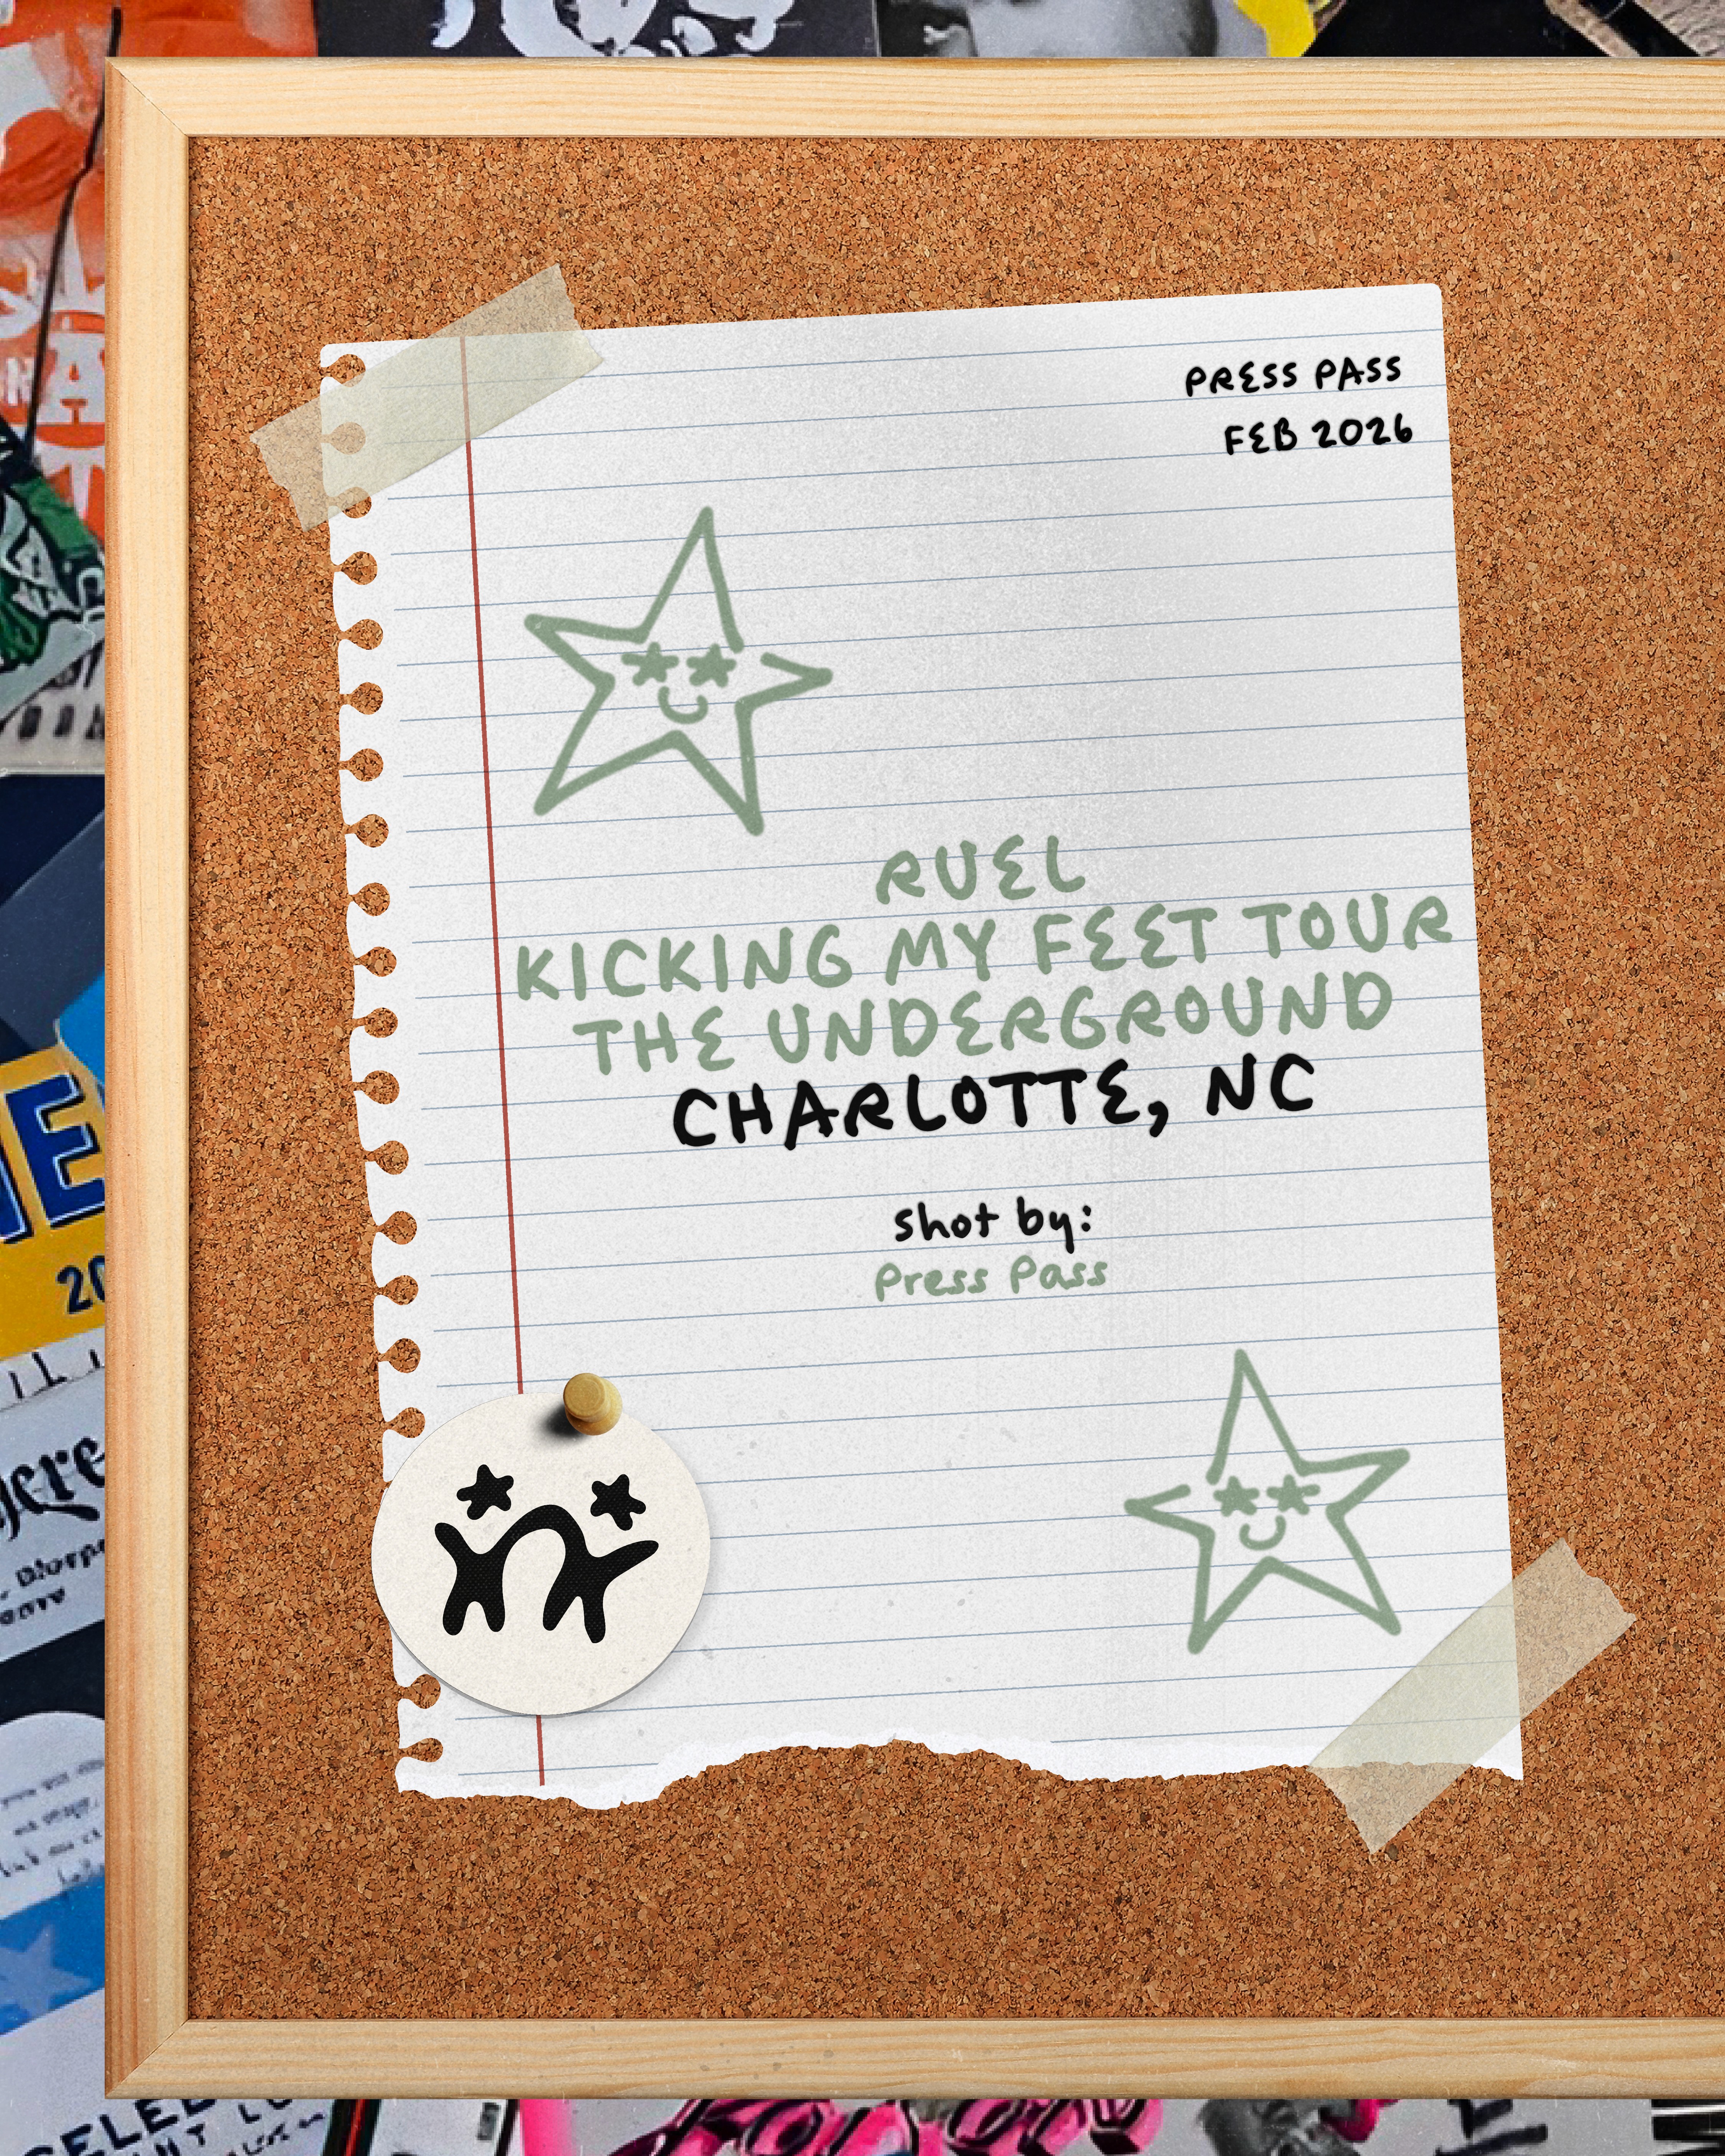 PRESS PASS
FEB 2026
RUEL
KICKING MY FEET TOUR
THE UNDERGROUND
CHARLOTTE, NC
shot by:
Press Pass
NE
20